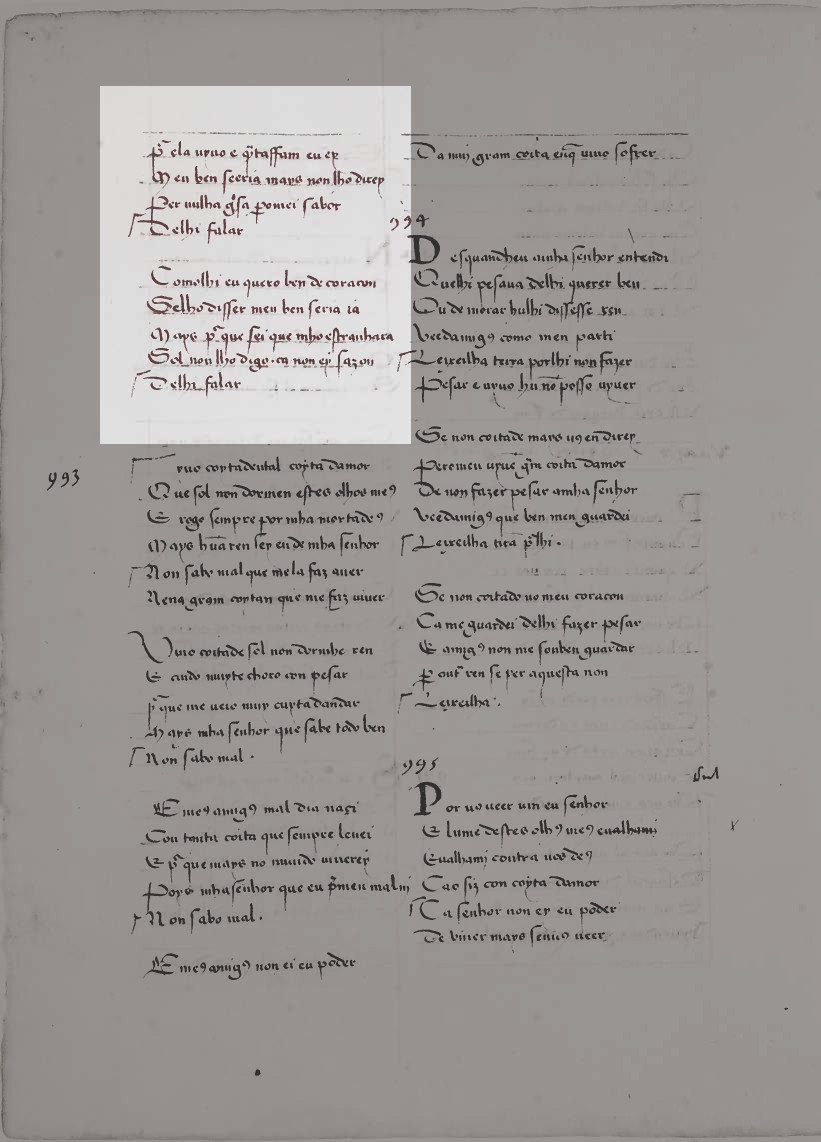 p̃ ela uyuo e q̃taffam eu ey
M eu ben seeria mays non lho direy
Per nulha guisa pomei sabor
Delhi falar
Comolhi eu quero ben de coracon
Selho disser meu ben seria ia
Mays p̃que sei que mho estranhara
Sol non lho digo. ca non ey sazon
Delhi falar
993
yuo coytadental coyta damor
Que sol non dormen estes olhos me9
E rogo sempre por mha mortade9
Mays hũa ren sey eu de mha senhor
Non sabo mal que me la faz auer
Nena gram coytan que me faz viuer
Viuo coitade sol non dormho ren
E ando muyto choro con pesar
p̃que me veio muy cuytadandar
Mays mha senhor que sabe todo ben
Non sabo mal.
E me9 amig9 mal dia naçi
Con tanta coita que sempre leuei
E p̃que mays no mundo viuerey
Poys mhasenhor que eu p̃meu mal ui
Non sabo mal.
E me9 amig9 non ei eu poder
Da mui gram coita enq̃ uiuo sofrer
994
Desquandheu amha senhor entendi
Quelhi pesaua delhi querer ben
Ou de morar hulhi dissesse ren
Veedamig9 como men parti
Leixeilha terra porlhi non fazer
Pesar e uyuo hu nõ posse uyuer
Se non coitade mays u9 en direy
Peromeu uyue grm coita damor
De non fazer pesar amha senhor
Veedamig9 que ben men guardei
Leixeilha tirã p̃lhi.
Se non coitado no meu coracon
Ca me guardei delhi fazer pesar
E amig9 non me souben guardar
p̃ outr ren se per aquesta non
Leixeilha.
995
Por uo ueer uin eu senhor
E lume destes olh9 me9 eualhami
Eualhami contra uos de9
Ca o fiz con coyta damor
Ca senhor non ey eu poder
De viuer mays sen u9 ueer